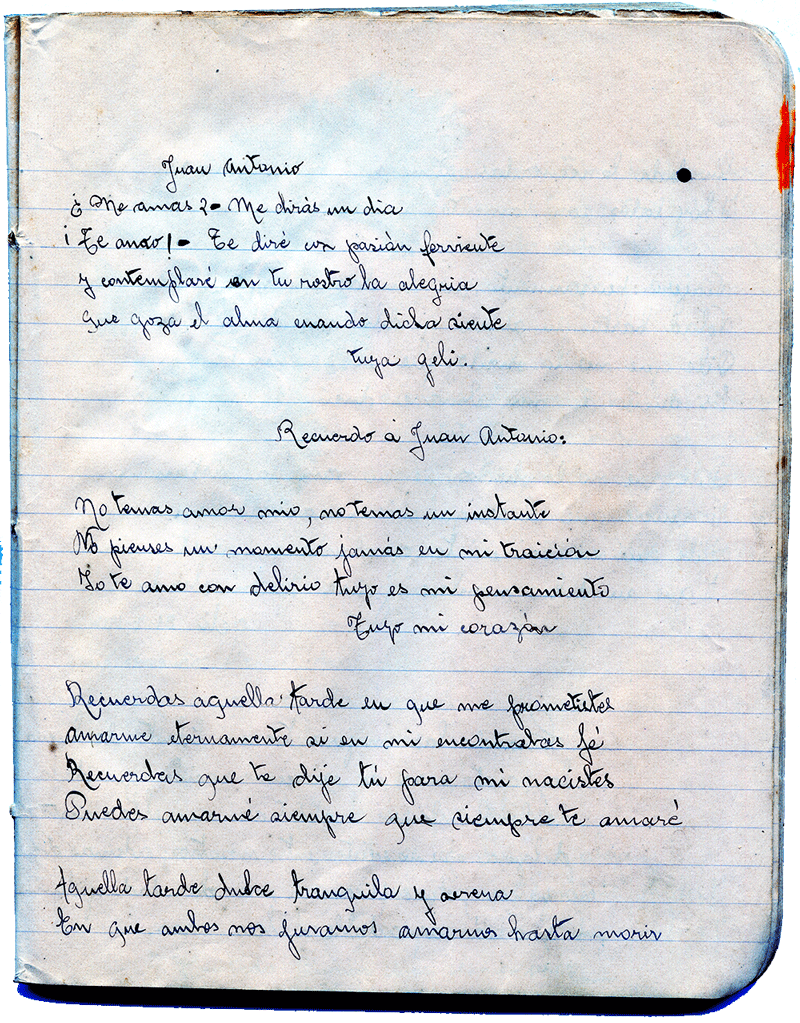 Juan Antonio
¿Me amas?- Me dirás un dia
¡Te amo!- Te diré con pasión ferviente
y contemplaré en tu rostro la alegria
que goza el alma cuando dicha siente
tuya geli.
Recuerdo á Juan Antonio:
No temas amor mio, no temas un instante
No pienses un momento jamás en mi traición
Yo te amo con delirio tuyo es mi pensamiento
Tuyo mi corazón
Recuerdas aquella tarde en que me prometistes
amarme eternamente si en mi encontrabas fé
Recuerdas que te dije tú para mi nacistes
Puedes amarmé siempre que siempre te amaré
Aquella tarde dulce tranquila y serena
En que ambos nos juramos amarnos hasta morir